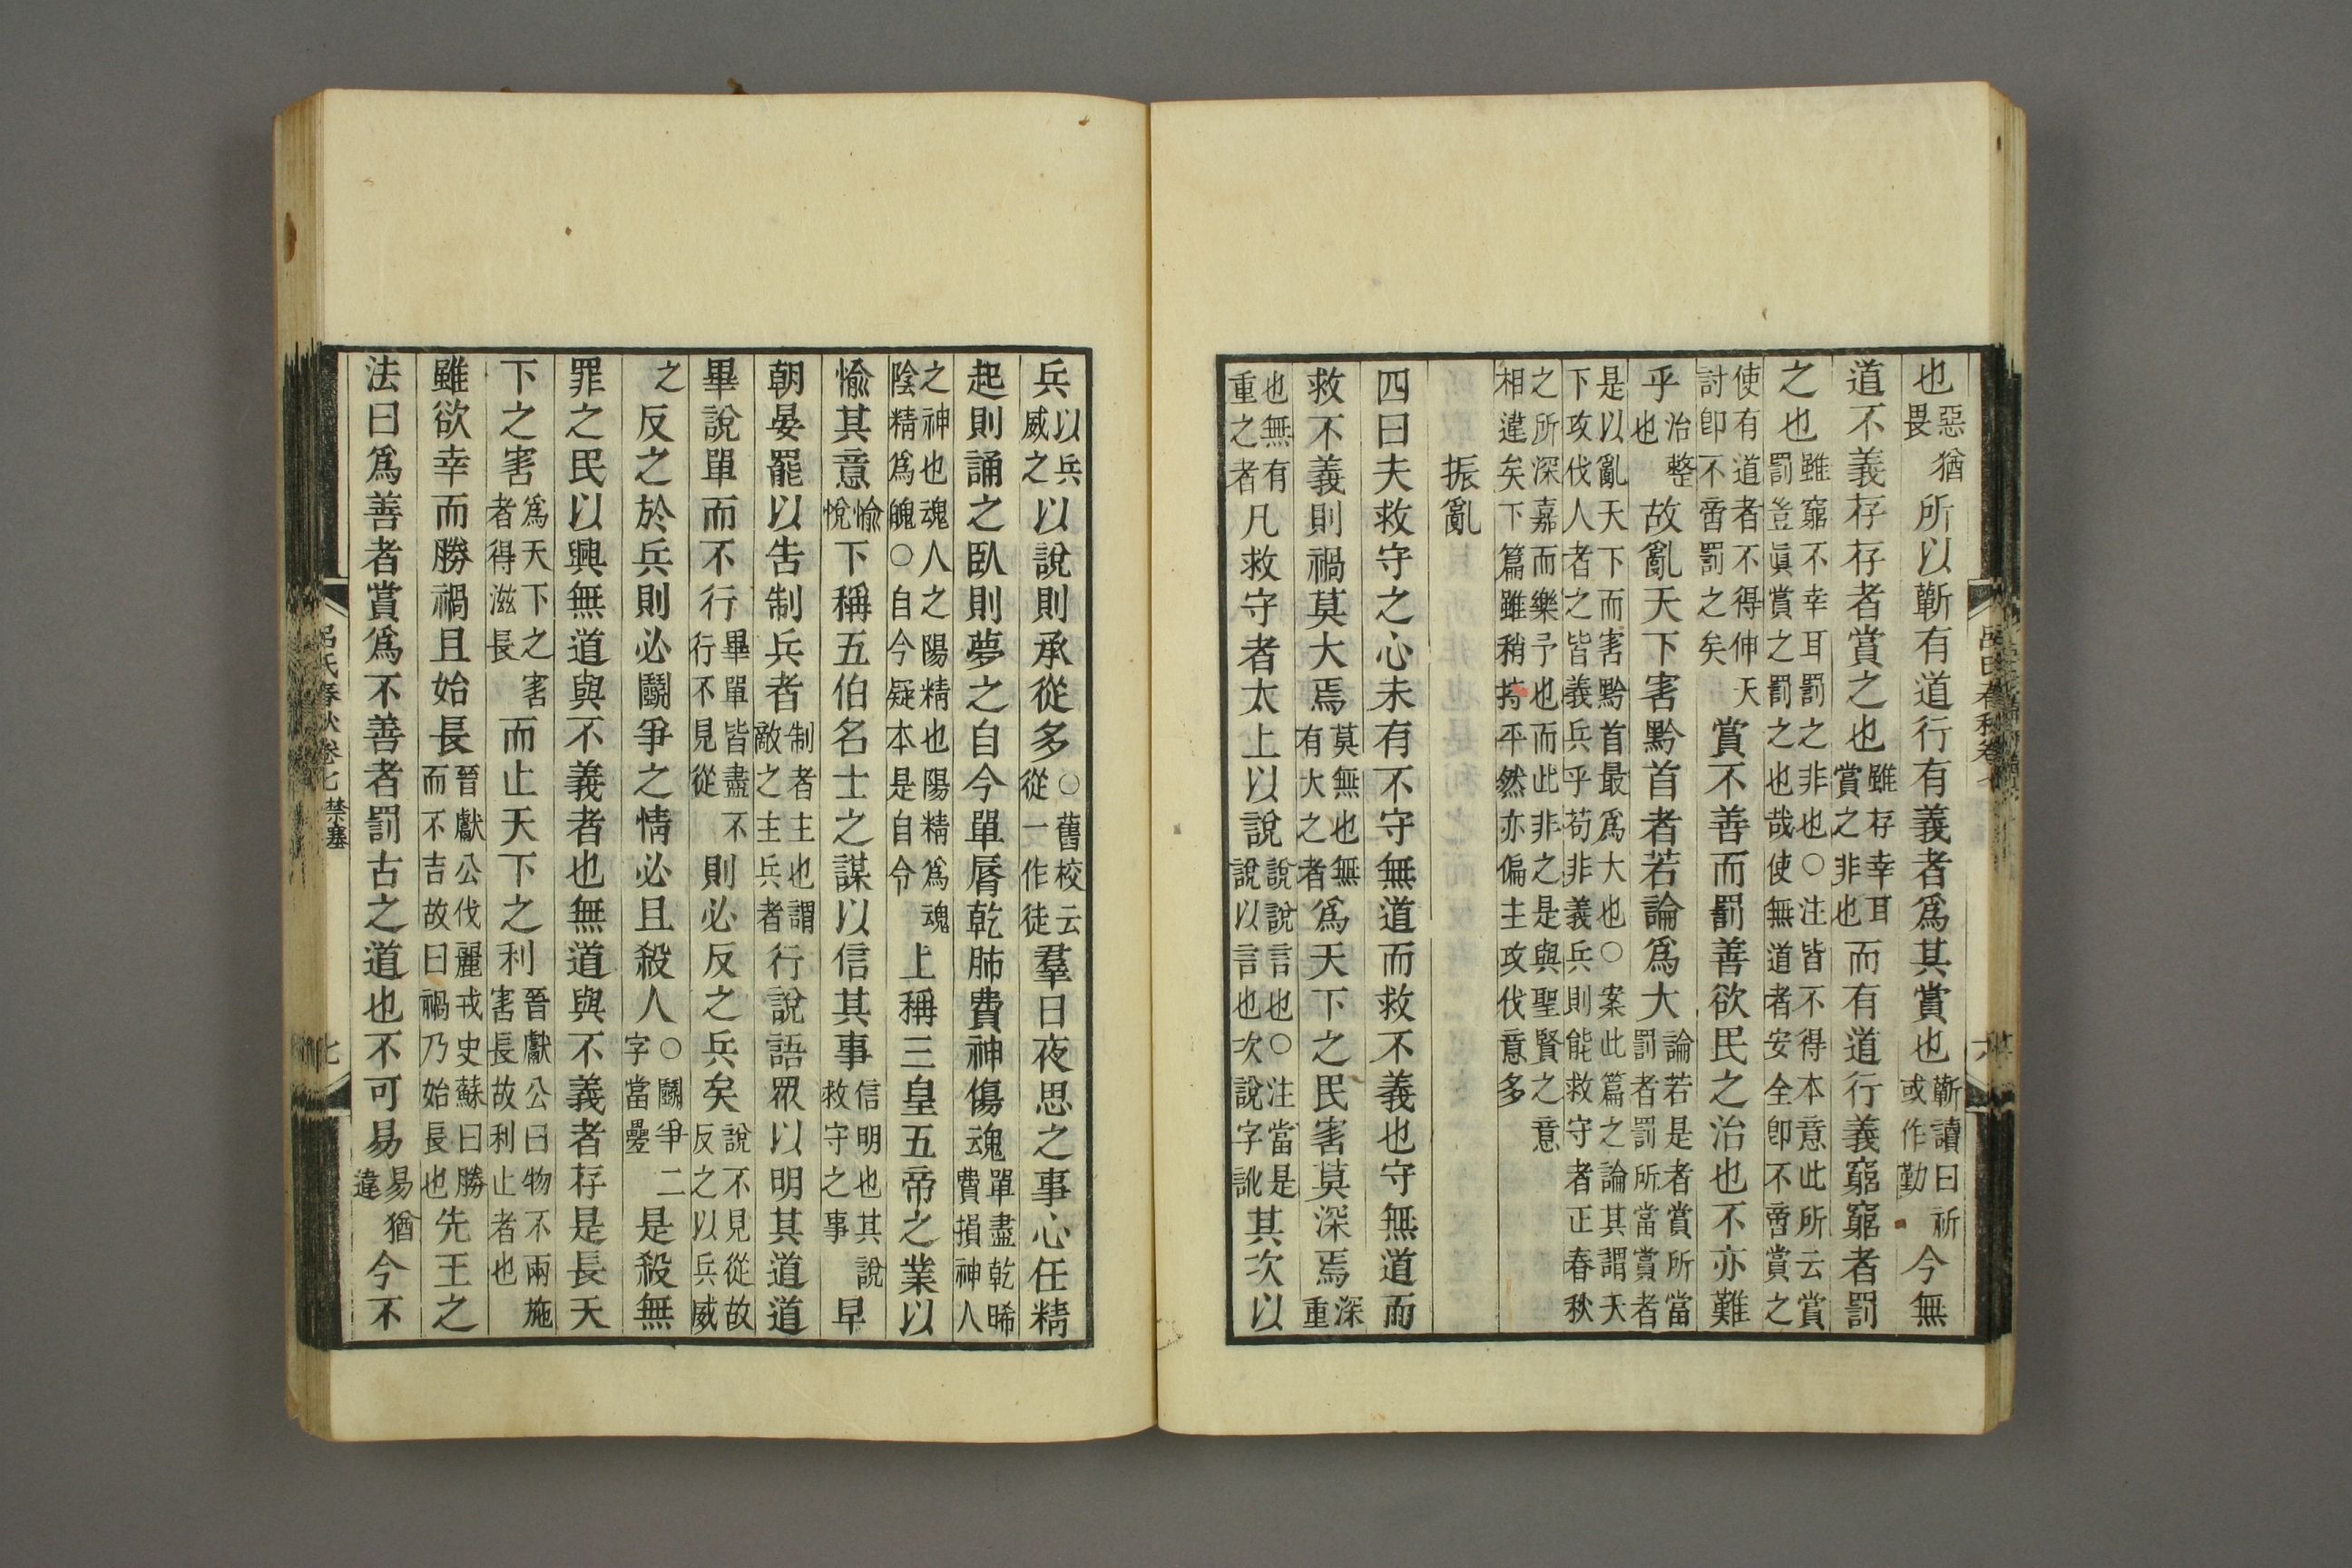 也惡猶畏所以蘄有道行有義者爲其賞也蘄讀曰祈或作勤今無
道不義存存者賞之也雖存幸耳賞之非也而有道行義窮窮者罰
之也雖窮不幸耳罰之非也○注皆不得本意此所云賞罰豈眞賞之罰之也哉使無道者安全卽不啻賞之
使有道者不得伸天討卽不啻罰之矣賞不善而罰善欲民之治也不亦難
乎治整也故亂天下害黔首者若論爲大論若是者賞所當罰者罰所當賞者
是以亂天下而害黔首最爲大也○案此篇之論其謂天下攻伐人者之皆義兵乎苟非義兵則能救守者正春秋
之所深嘉而樂予也而此非之是與聖賢之意相違矣下篇雖稍持平然亦偏主攻伐意多
振亂
四曰夫救守之心未有不守無道而救不義也守無道而
救不義則禍莫大焉莫無也無有大之者爲天下之民害莫深焉深重
也無有重之者凡救守者太上以說說說言也○注當是說以言也次說字訛其次以
兵以兵威之以說則承從多○舊校云從一作徒羣日夜思之事心任精
起則誦之臥則夢之自今單脣乾肺費神傷魂單盡乾晞費損神人
之神也魂人之陽精也陽精爲魂陰精爲魄○自今疑本是自令上稱三皇五帝之業以
愉其意愉悅下稱五伯名士之謀以信其事信明也其說救守之事早
朝晏罷以告制兵者制者主也謂敵之主兵者行說語眾以明其道道
畢說單而不行畢單皆盡不行不見從則必反之兵矣說不見從故反之以兵威
之反之於兵則必鬭爭之情必且殺人○鬭爭二字當疊是殺無
罪之民以興無道與不義者也無道與不義者存是長天
下之害爲天下之害者得滋長而止天下之利晉獻公曰物不兩施害長故利止者也
雖欲幸而勝禍且始長晉獻公伐麗戎史蘇曰勝而不吉故曰禍乃始長也先王之
法曰爲善者賞爲不善者罰古之道也不可易易猶違今不
呂氏春秋卷七 禁塞
七